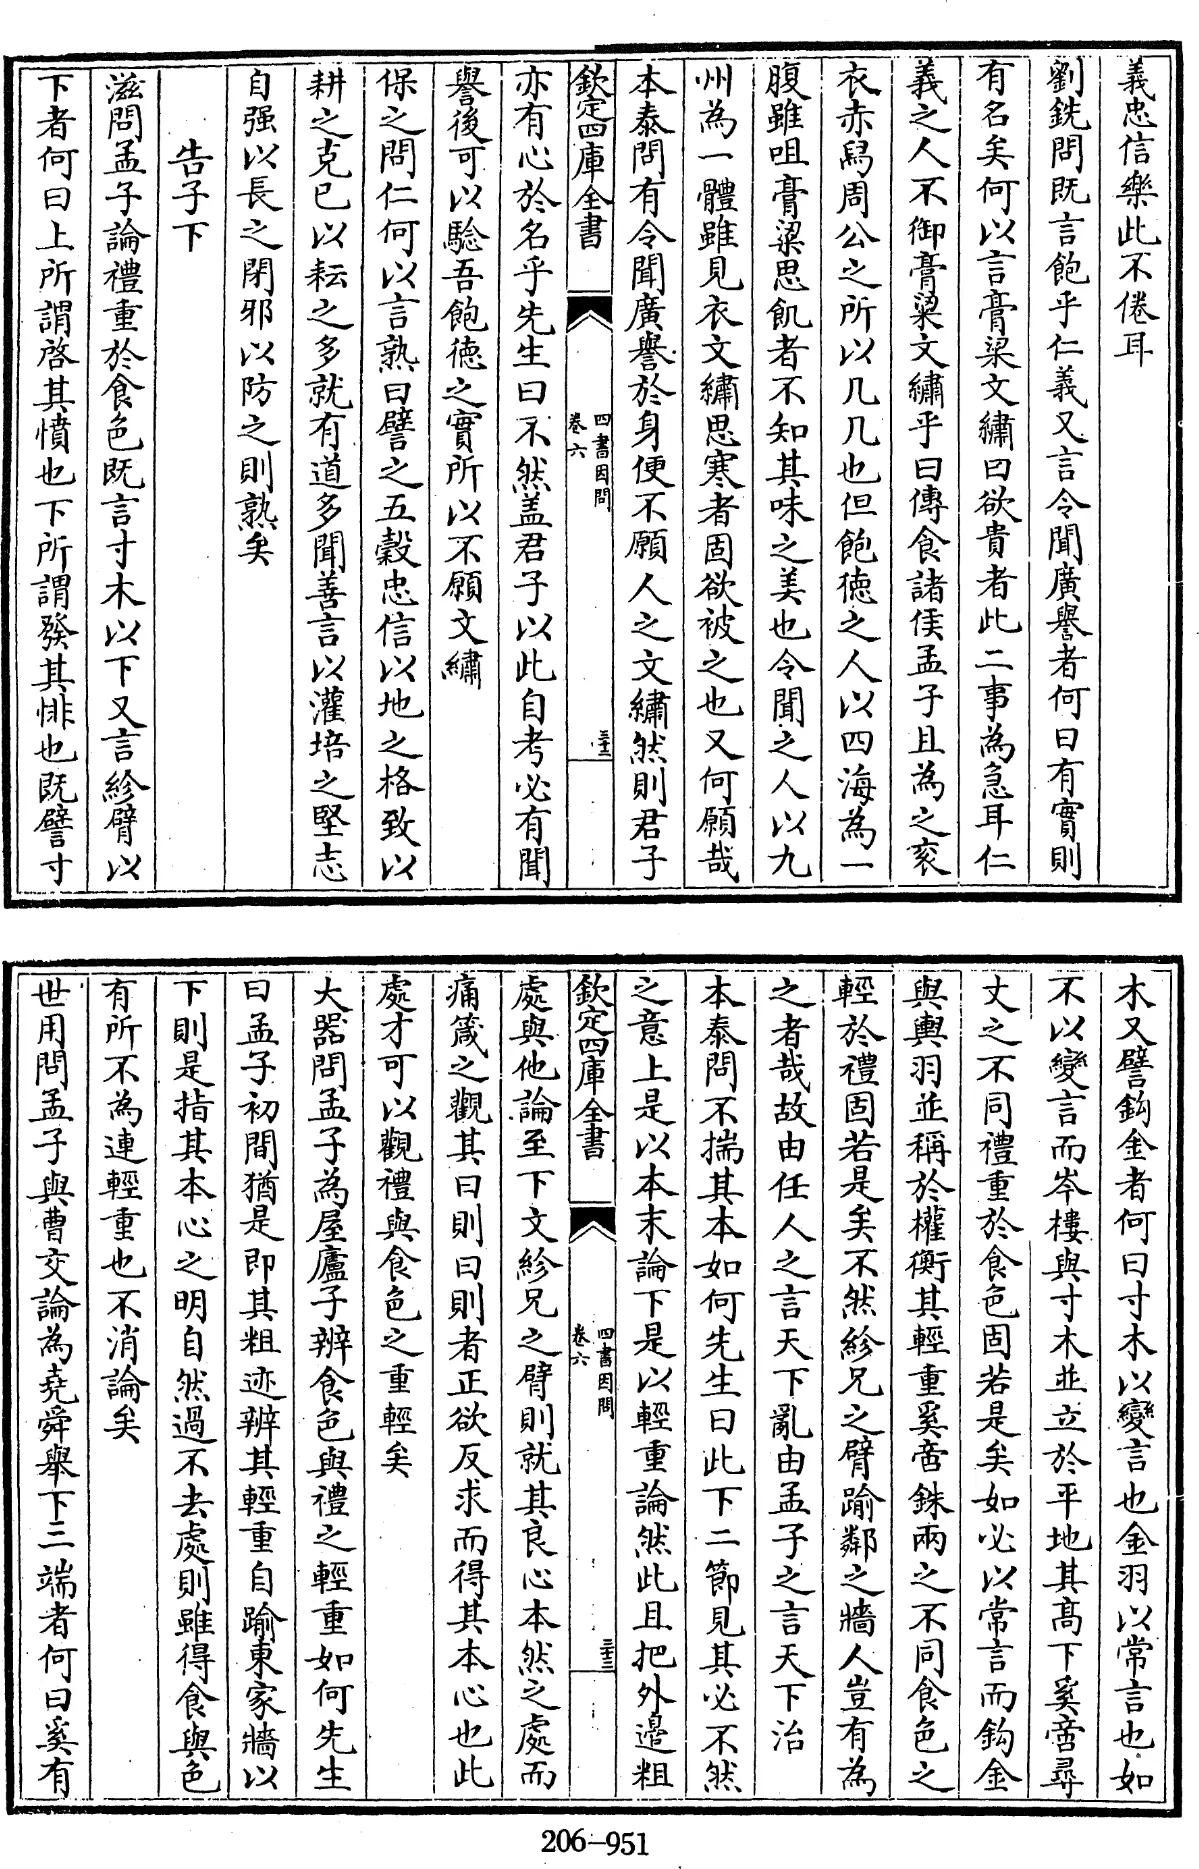 義忠信樂此不倦耳
劉銑問既言飽乎仁義又言令聞廣譽者何曰有實則
有名矣何以言膏粱文繡曰欲貴者此二事為急耳仁
義之人不御膏粱文繡乎曰傳食諸侯孟子且為之衮
衣赤舄周公之所以几几也但飽徳之人以四海為一
腹雖咀膏粱思飢者不知其味之美也令聞之人以九
州為一體雖見衣文繡思寒者固欲被之也又何願哉
本泰問有令聞廣譽於身便不願人之文繡然則君子
欽定四庫全書
四書因問
卷六
三十二
亦有心於名乎先生曰不然盖君子以此自考必有聞
譽後可以驗吾飽徳之實所以不願文繡
保之問仁何以言熟曰譬之五穀忠信以地之格致以
耕之克已以耘之多就有道多聞善言以灌培之堅志
自强以長之閑邪以防之則熟矣
告子下
滋問孟子論禮重於食色既言寸木以下又言紾臂以
下者何曰上所謂啓其憤也下所謂發其悱也既譬寸
木又譬鈎金者何曰寸木以變言也金羽以常言也如
不以變言而岑樓與寸木並立於平地其髙下奚啻尋
丈之不同禮重於食色固若是矣如必以常言而鈎金
與輿羽並稱於權衡其輕重奚啻銖兩之不同食色之
輕於禮固若是矣不然紾兄之臂踰鄰之牆人豈有為
之者哉故由任人之言天下亂由孟子之言天下治
本泰問不揣其本如何先生曰此下二節見其必不然
之意上是以本末論下是以輕重論然此且把外邉粗
欽定四庫全書
四書因問
卷六
三十三
處與他論至下文紾兄之臂則就其良心本然之處而
痛箴之觀其曰則曰則者正欲反求而得其本心也此
處才可以觀禮與食色之重輕矣
大器問孟子為屋廬子辨食色與禮之輕重如何先生
曰孟子初間猶是即其粗迹辨其輕重自踰東家牆以
下則是指其本心之明自然過不去處則雖得食與色
有所不為連輕重也不消論矣
世用問孟子與曹交論為堯舜舉下三端者何曰奚有
206-951